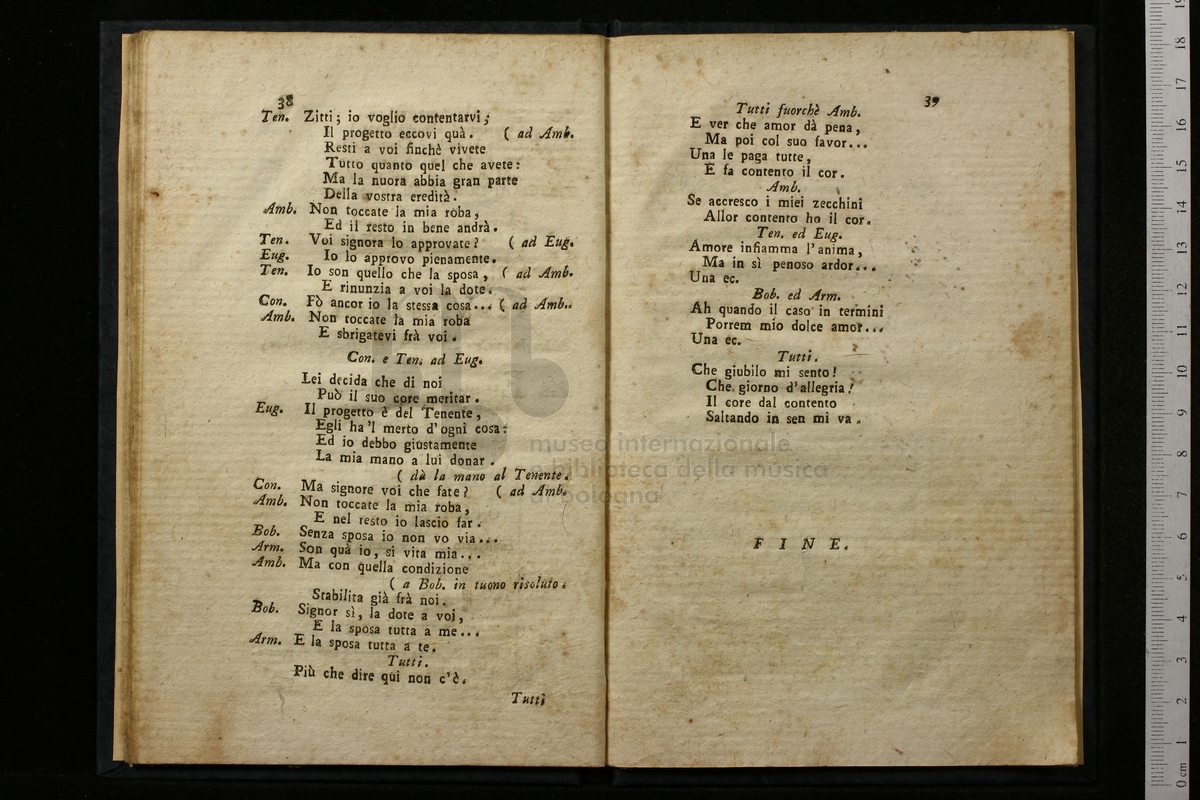 38
Ten. Zitti; io voglio contentarvi;
Il progetto eccovi quà. ( ad Amb.
Resti a voi finchè vivete
Tutto quanto quel che avete:
Ma la nuora abbia gran parte
Della vostra eredità.
Amb. Non toccate la mia roba,
Ed il resto in bene andrà.
Ten. Voi signora lo approvate? ( ad Eug.
Eug. Io lo approvo pienamente.
Ten. Io son quello che la sposa, ( ad Amb.
E rinunzia a voi la dote.
Con. Fò ancor io la stessa cosa... ( ad Amb..
Amb. Non toccate la mia roba
E sbrigatevi frà voi.
Con. e Ten. ad Eug.
Lei decida che di noi
Può il suo core meritar.
Eug. Il progetto è del Tenente,
Egli ha 'l merto d' ogni cosa:
Ed io debbo giustamente
La mia mano a lui donar.
( dà la mano al Tenente.
Con. Ma signore voi che fate? ( ad Amb.
Amb. Non toccate la mia roba,
E nel resto io lascio far.
Bob. Senza sposa io non vo via...
Arm. Son quà io, si vita mia...
Amb. Ma con quella condizione
( a Bob. in tuono risoluto.
Stabilita già frà noi.
Bob. Signor sì, la dote a voi,
E la sposa tutta a me...
Arm. E la sposa tutta a te.
Tutti.
Più che dire qui non c'è.
Tutti
39
Tutti fuorchè Amb.
E ver che amor dà pena,
Ma poi col suo favor...
Una le paga tutte,
E fa contento il cor.
Amb.
Se accresco i miei zecchini
Allor contento ho il cor.
Ten. ed Eug.
Amore infiamma l'anima,
Ma in sì penoso ardor...
Una ec.
Bob. ed Arm.
Ah quando il caso in termini
Porrem mio dolce amor...
Una ec.
Tutti.
Che giubilo mi sento!
Che giorno d'allegria!
Il core dal contento
Saltando in sen mi va.
FINE.
museo internazionale
e biblioteca della musica
bologna
0 cm 1 2 3 4 5 6 7 8 9 10 11 12 13 14 15 16 17 18 19